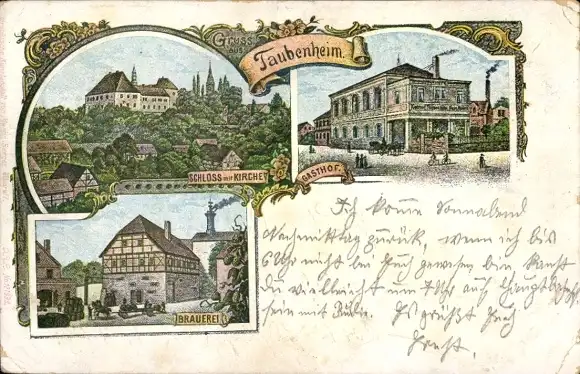 GRUSS
AUS
Taubenheim.
SCHLOSS MIT KIRCHE
GASTHOF.
BRAUEREI
Ich komme Sonnabend
Nachmittag zurück, wenn ich bis
6 Uhr nicht bei Euch gewesen bin kannst
du vielleicht um 7 Uhr auf
sein mit Es grüßt Euch
Ernst.